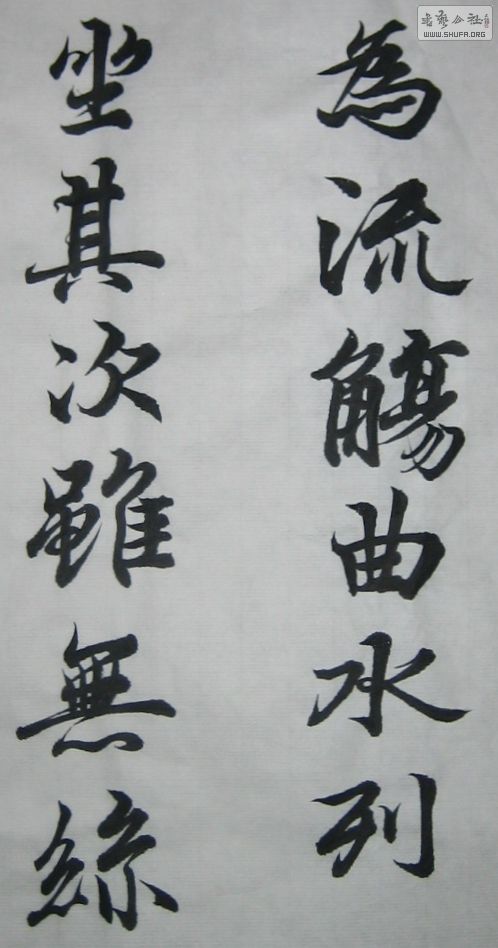 為流觴曲水列
坐其次雖無絲
書藝公社
WWW.SHUFA.ORG